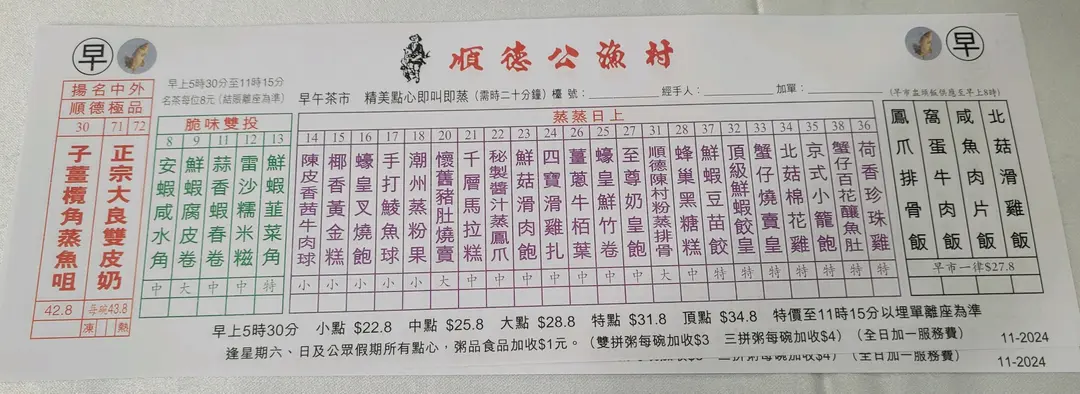 早
順德公漁村
早
揚名中外
順德極品
早上5時30分至11時15分
名茶每位8元（結賬離座為準）
早午茶市 精美點心即叫即蒸（需時二十分鐘）檯號： 經手人： 加單：
（早市盅頭飯供應至早上8時）
30 子薑欖角蒸魚咀 42.8
71 72 正宗大良雙皮奶 每碗43.8 凍 熱
脆味雙投
8 安蝦咸水角 中
9 鮮蝦腐皮卷 大
11 蒜香蝦春卷 中
12 雷沙糯米糍 中
13 鮮蝦韮菜角 特
蒸蒸日上
14 陳皮香茜牛肉球 小
15 椰香黃金糕 小
16 蠔皇叉燒飽 小
17 手打鯪魚球 小
18 潮州蒸粉果 小
20 懷舊豬肚燒賣 大
21 千層馬拉糕 中
22 秘製醬汁蒸鳳爪 中
23 鮮菇滑肉飽 中
24 四寶滑雞扎 中
25 薑蔥牛栢葉 中
26 蠔皇鮮竹卷 中
27 至尊奶皇飽 中
31 順德陳村粉蒸排骨 大
28 蜂巢黑糖糕 中
37 鮮蝦豆苗餃 特
32 頂級鮮蝦餃皇 特
33 蟹仔燒賣皇 特
34 北菇棉花雞 特
35 京式小籠飽 特
38 蟹仔百花釀魚肚 特
36 荷香珍珠雞 特
鳳爪排骨飯
窩蛋牛肉飯
咸魚肉片飯
北菇滑雞飯
早市一律$27.8
早上5時30分 小點 $22.8 中點 $25.8 大點 $28.8 特點 $31.8 頂點 $34.8 特價至11時15分以埋單離座為準
逢星期六、日及公眾假期所有點心，粥品食品加收$1元。（雙拼粥每碗加收$3 三拼粥每碗加收$4）（全日加一服務費） 11-2024
三拼粥每碗加收$4）（全日加一服務費） 11-2024